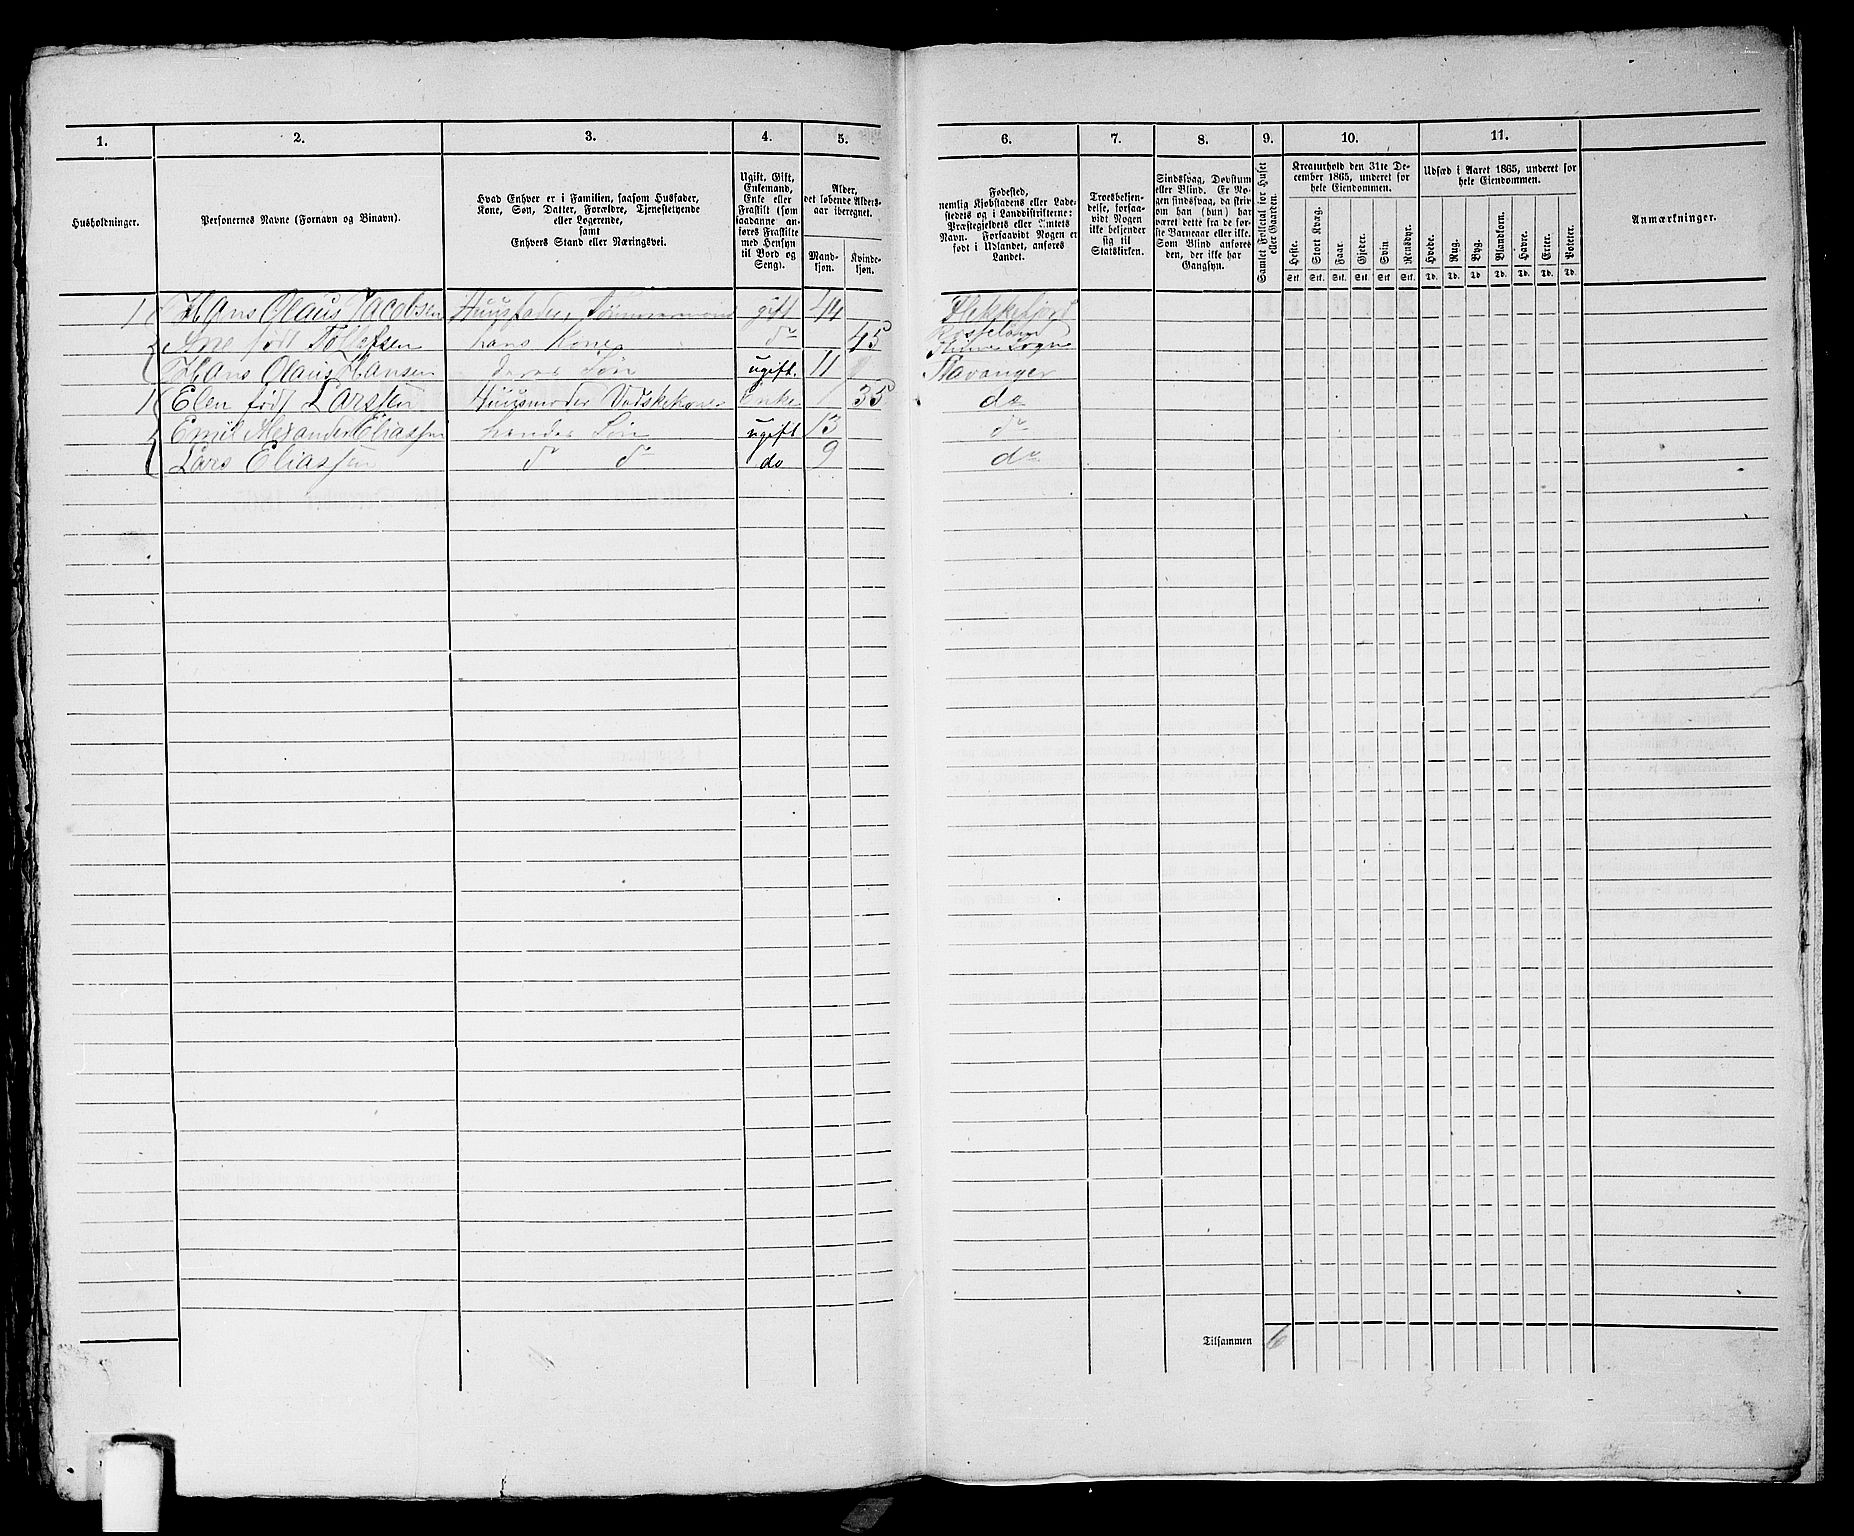 1. 2. 3. 4. 5. 6. 7. 8. 9. 10. 11.
Husholdninger.
Personernes Navne (Fornavn og Binavn).
Hvad Enhver er i Familien, saasom Husfader,
Kone, Søn, Datter, Forældre, Tjenestetyende
eller Logerende,
samt
Enhvers Stand eller Næringsvei.
Ugift, Gift,
Enkemand,
Enke eller
Fraskilt (som
saadanne an-
føres Fraskilte
med Hensyn
til Bord og
Seng).
Alder,
det løbende Alders-
aar iberegnet.
Mand-
kjøn.
Kvinde-
kjøn.
Fødested,
nemlig Kjøbstadens eller Lade-
stedets og i Landdistrikterne:
Præstegjeldets eller Amtets
Navn. Forsaavidt Nogen er
født i Udlandet, anføres
Landet.
Troesbekjen-
delse, forsaa-
vidt Nogen
ikke bekjender
sig til
Statskirken.
Sindssvag, Døvstum
eller Blind. Er No-
gen sindssvag, da skriv
om han (hun) har
været dette fra de før-
ste Barneaar eller ikke.
Som Blind anføres
den, der ikke har
Gangsyn.
Samlet Folketal for Huset
eller Gaarden.
Kreaturhold den 31te De-
cember 1865, underet for
hele Eiendommen.
Heste. Stort Kvæg. Faar. Gjeder. Svin Rensdyr.
Stk. Stk. Stk. Stk. Stk. Stk.
Udsæd i Aaret 1865, underet for
hele Eiendommen.
Hvede. Rug. Byg. Blandkorn. Havre. Erter. Poteter.
Td. Td. Td Td Td. Td. Td.
Anmærkninger.
1 Hans Olaus Jacobsen Huusfader, Tømmermand gift 44 Flekkefjord
Ane født Tollefsen hans Kone do 45 Sogn
Hans Olaus Hansen deres Søn ugift. 11 Stavanger
1 Elen født Larssen Huusmoder Vadskekoner Enke 35 do
Emil Alexander Eliassen hendes Søn ugift 13 do
Lars Eliassen do do do 9 do
Tilsammen 6